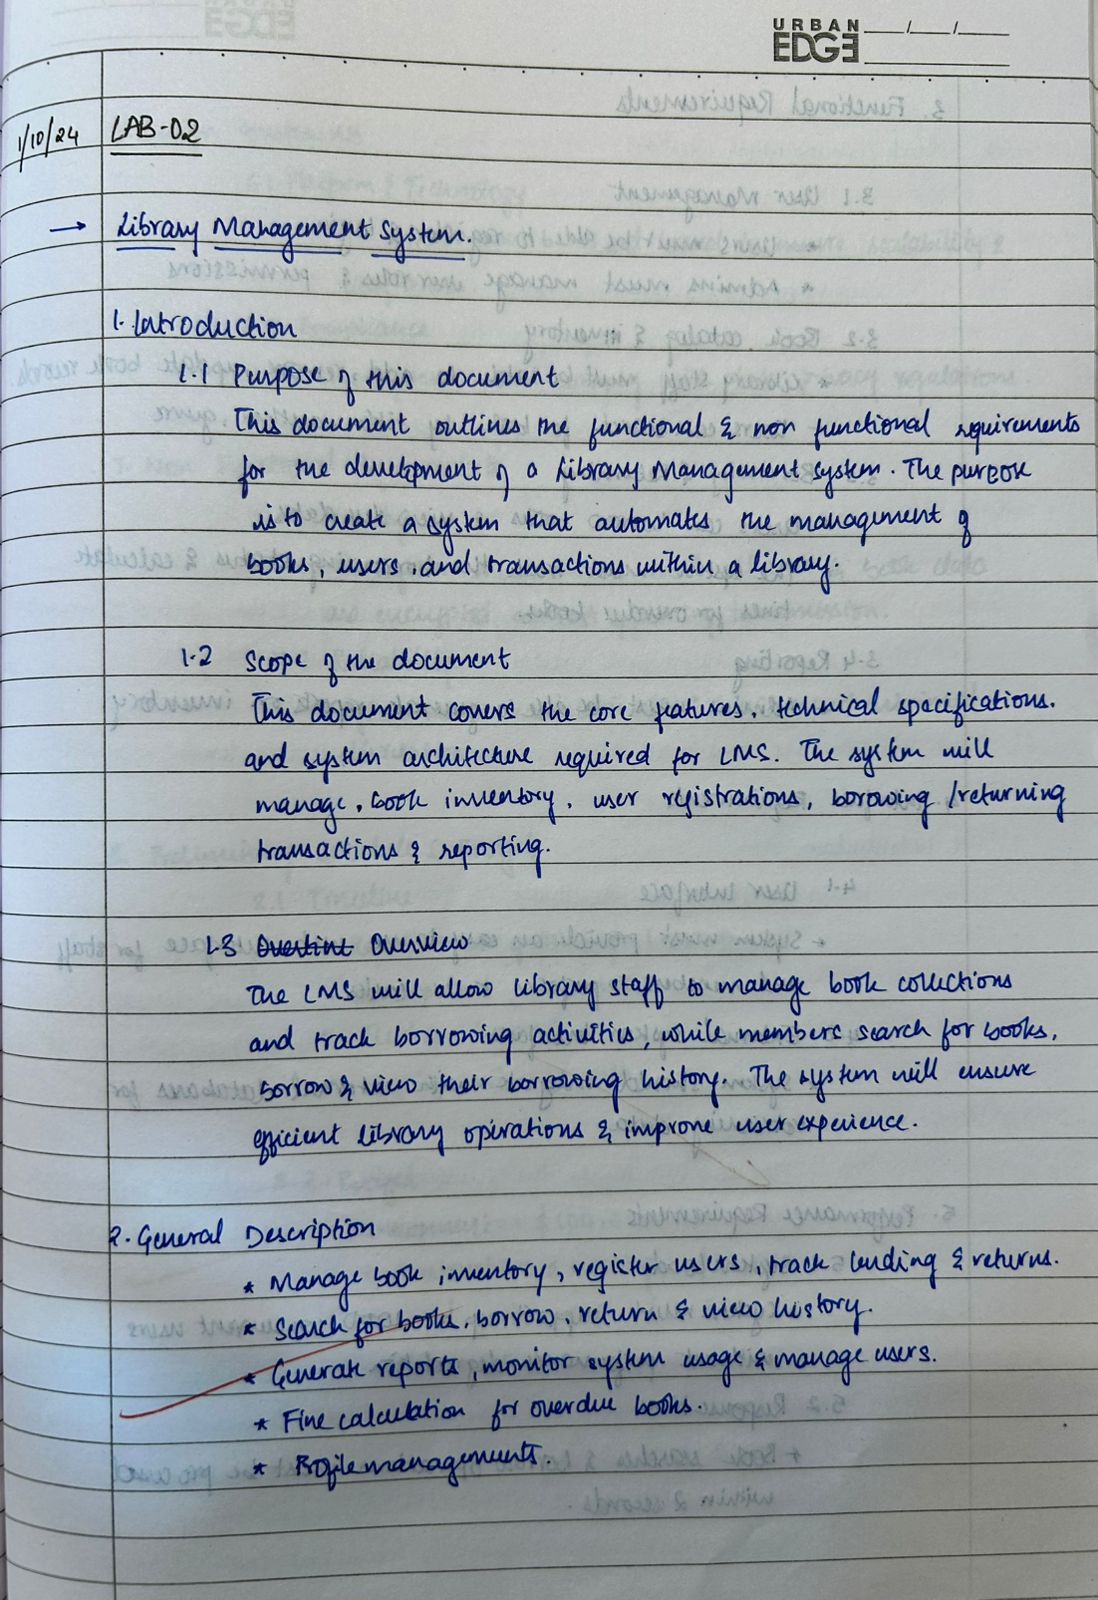 URBAN
EDGE
1/10/24 LAB-02
→ Library Management System.
1. Introduction
1.1 Purpose of this document
This document outlines the functional & non functional requirements
for the development of a Library Management system. The purpose
is to create a system that automates the management of
books, users, and transactions within a library.
1.2 Scope of the document
This document covers the core features, technical specifications.
and system architecture required for LMS. The system will
manage, book inventory, user registrations, borowing /returning
transactions & reporting.
1.3 Overview
The LMS will allow library staff to manage book collections
and track borrowing activities, while members search for books,
borrow & view their borrowing history. The system will ensure
efficient library operations & improve user experience.
2. General Description
* Manage book inventory, register users, track lending & returns.
* Search for books, borrow, return & view history.
* Generate reports, monitor system usage & manage users.
* Fine calculation for overdue books.
* Profile managements.